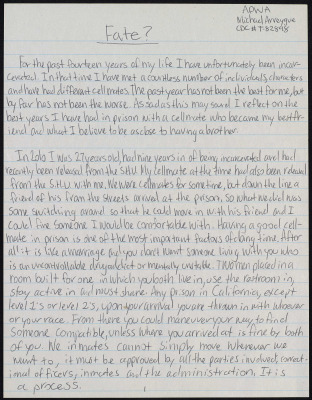 APWA
Michael Arreygue
CDC # T-82848
Fate?
For the past fourteen years of my life I have unfortunately been incar-
cerated. In that time I have met a countless number of individuals, characters
and have had different cellmates. The past year has not been the best for me, but
by far has not been the worse. As sad as this may sound I reflect on the
best years I have had in prison with a cellmate who became my best fr-
iend and what I believe to be as close to having a brother.
In 2010 I was 27 years old, had nine years in of being incarcerated and had
recently been released from the S.H.U. My cellmate at the time had also been released
from the S.H.U. with me. We were cellmates for some time, but down the line a
friend of his from the streets arrived at the prison, so what we did was
some switching around so that he could move in with his friend and I
could find someone I would be comfortable with. Having a good cell-
mate in prison is one of the most important factors of doing time. After
all it is like a marriage and you don't want someone living with you who
is an uncontrollable drug addict or mentally unstable. Two men placed in a
room built for one in which you both live in, use the restroom in,
stay active in and must share. Any prison in California, except
level 1's or level 2's, upon your arrival you are thrown in with whoever
or your race. From there you could maneuver your way to find
someone compatible, unless where you arrived at is fine by both
of you. We inmates cannot simply move wherever we
want to, it must be approved by all the parties involved, correct-
ional officers, inmates and the administration. It is
a process.
1